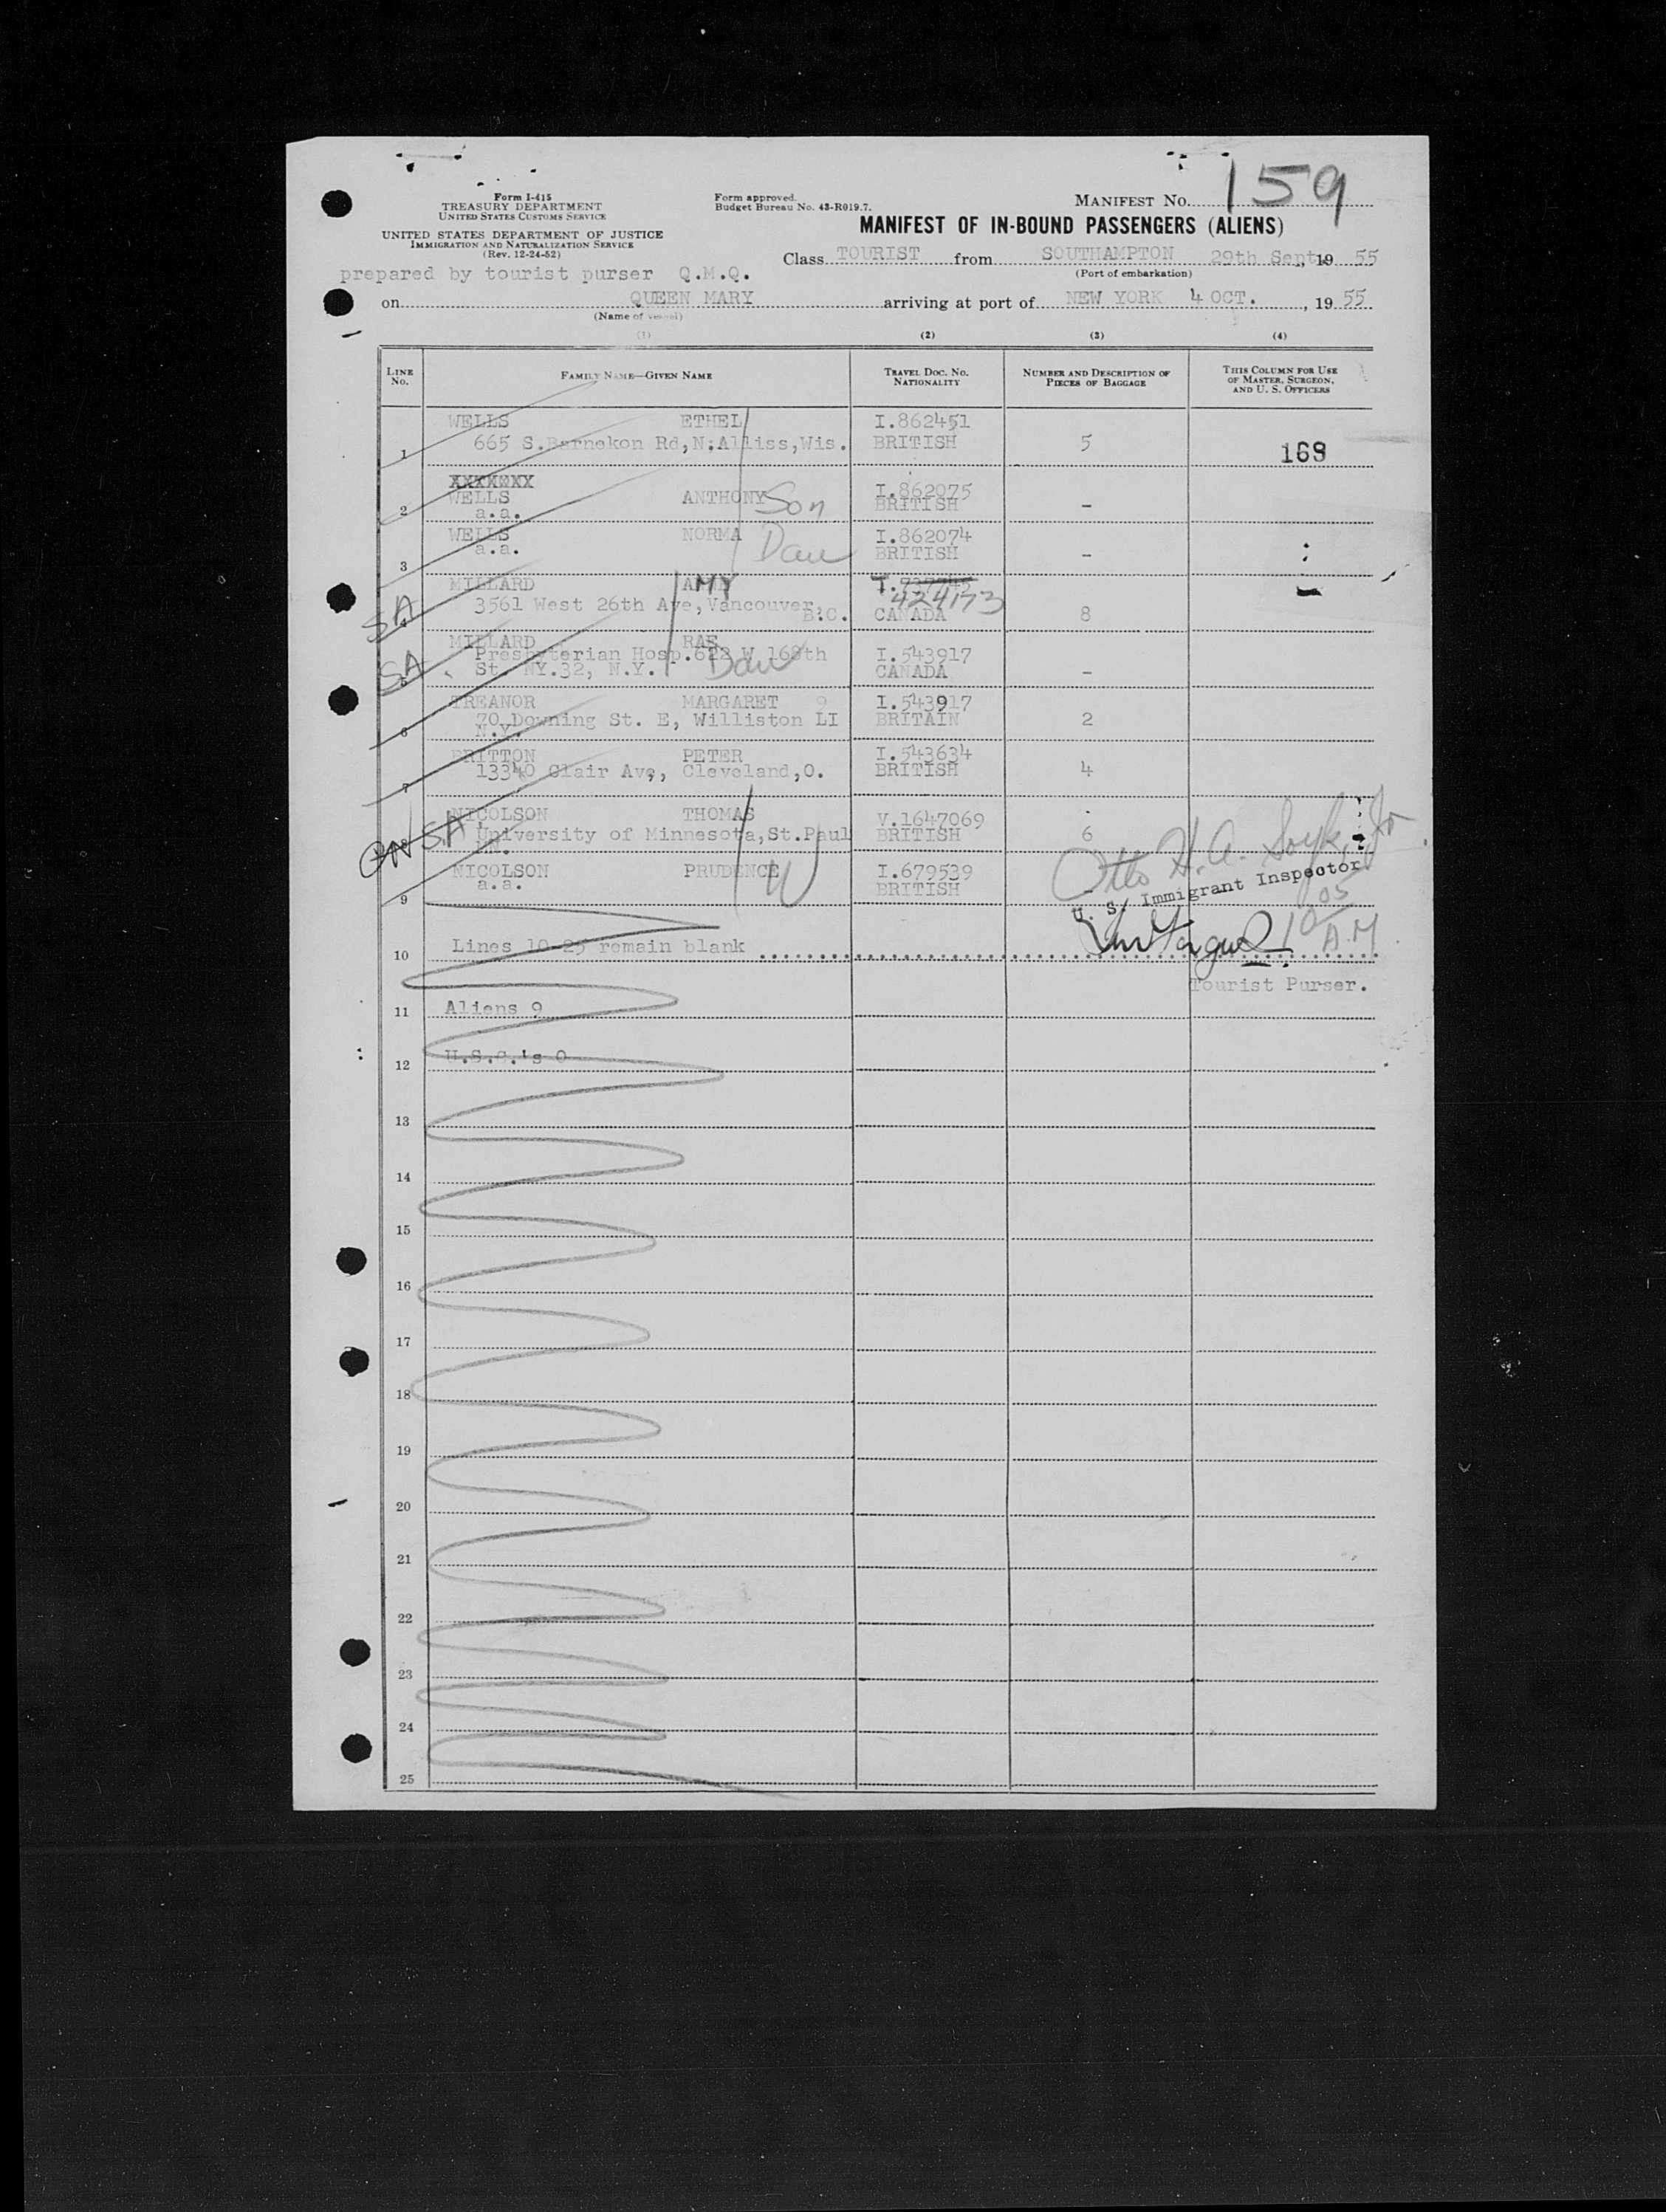 Form I-415
TREASURY DEPARTMENT
UNITED STATES CUSTOMS SERVICE
UNITED STATES DEPARTMENT OF JUSTICE
IMMIGRATION AND NATURALIZATION SERVICE
(Rev. 12-24-52)
Form approved.
Budget Bureau No. 43-R019.7.
MANIFEST No. 159
MANIFEST OF IN-BOUND PASSENGERS (ALIENS)
Class TOURIST from SOUTHAMPTON 29th Sept, 19 55
(Port of embarkation)
prepared by tourist purser Q.M.Q.
on QUEEN MARY arriving at port of NEW YORK 4 OCT., 19 55
(Name of vessel)
(1) (2) (3) (4)
LINE No. FAMILY NAME—GIVEN NAME TRAVEL DOC. No. NATIONALITY NUMBER AND DESCRIPTION OF PIECES OF BAGGAGE THIS COLUMN FOR USE OF MASTER, SURGEON, AND U. S. OFFICERS
WELLS ETHEL I.862451
1 665 S. Barnekon Rd,N.Alliss,Wis. BRITISH 5 168
XXXXXXX
2 WELLS ANTHONY Son I.862075
a.a. BRITISH -
WELLS NORMA Dau I.862074
3 a.a. BRITISH -
SA MILLARD AMY T.
424173
4 3561 West 26th Ave,Vancouver, B.C. CANADA 8
SA MILLARD RAE Dau
5 Presbyterian Hosp.622 W 168th I.543917
St. NY.32, N.Y. CANADA -
TREANOR MARGARET 9 I.543917
6 70 Downing St. E, Williston LI BRITAIN 2
N.Y.
BRITTON PETER I.543634
7 13340 Clair Ave, Cleveland,O. BRITISH 4
SA NICOLSON THOMAS V.1647069
University of Minnesota,St.Paul BRITISH 6
NICOLSON PRUDENCE W I.679539
9 a.a. BRITISH -
Otto H. A. Soyk, Jr
U. S. Immigrant Inspector
10 05 A.M
10 Lines 10-25 remain blank
Tourist Purser.
11 Aliens 9
12 U.S.C.'s 0
13
14
15
16
17
18
19
20
21
22
23
24
25